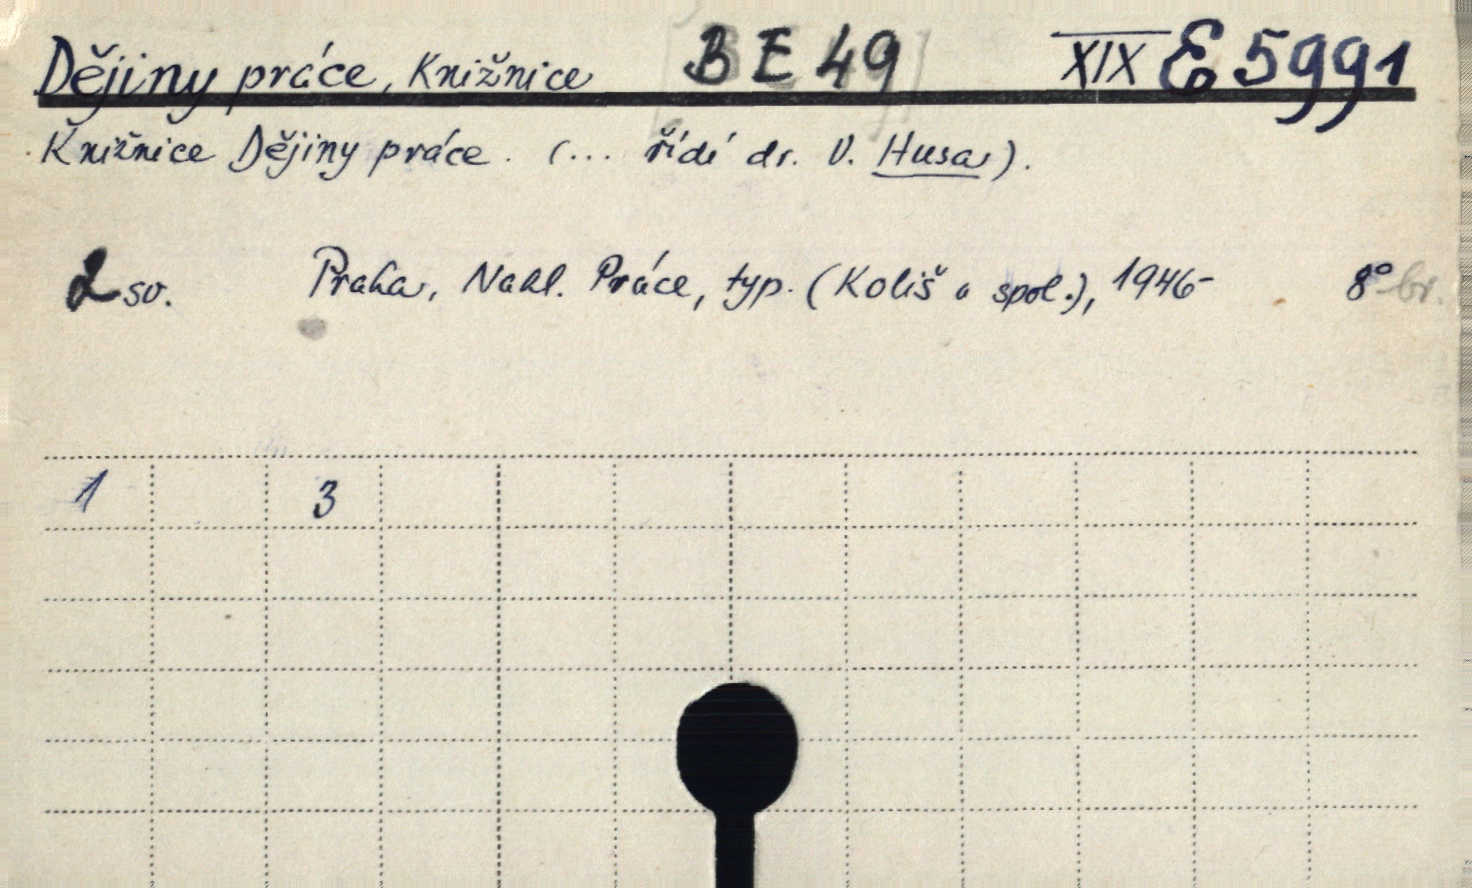 Dějiny práce, Knižnice BE 49 XIX E 5991
Knižnice Dějiny práce. (... řídí dr. V. Husa).
2 sv. Praha, Nakl. Práce, typ. (Koliš a spol.), 1946- 8° br.
1 3